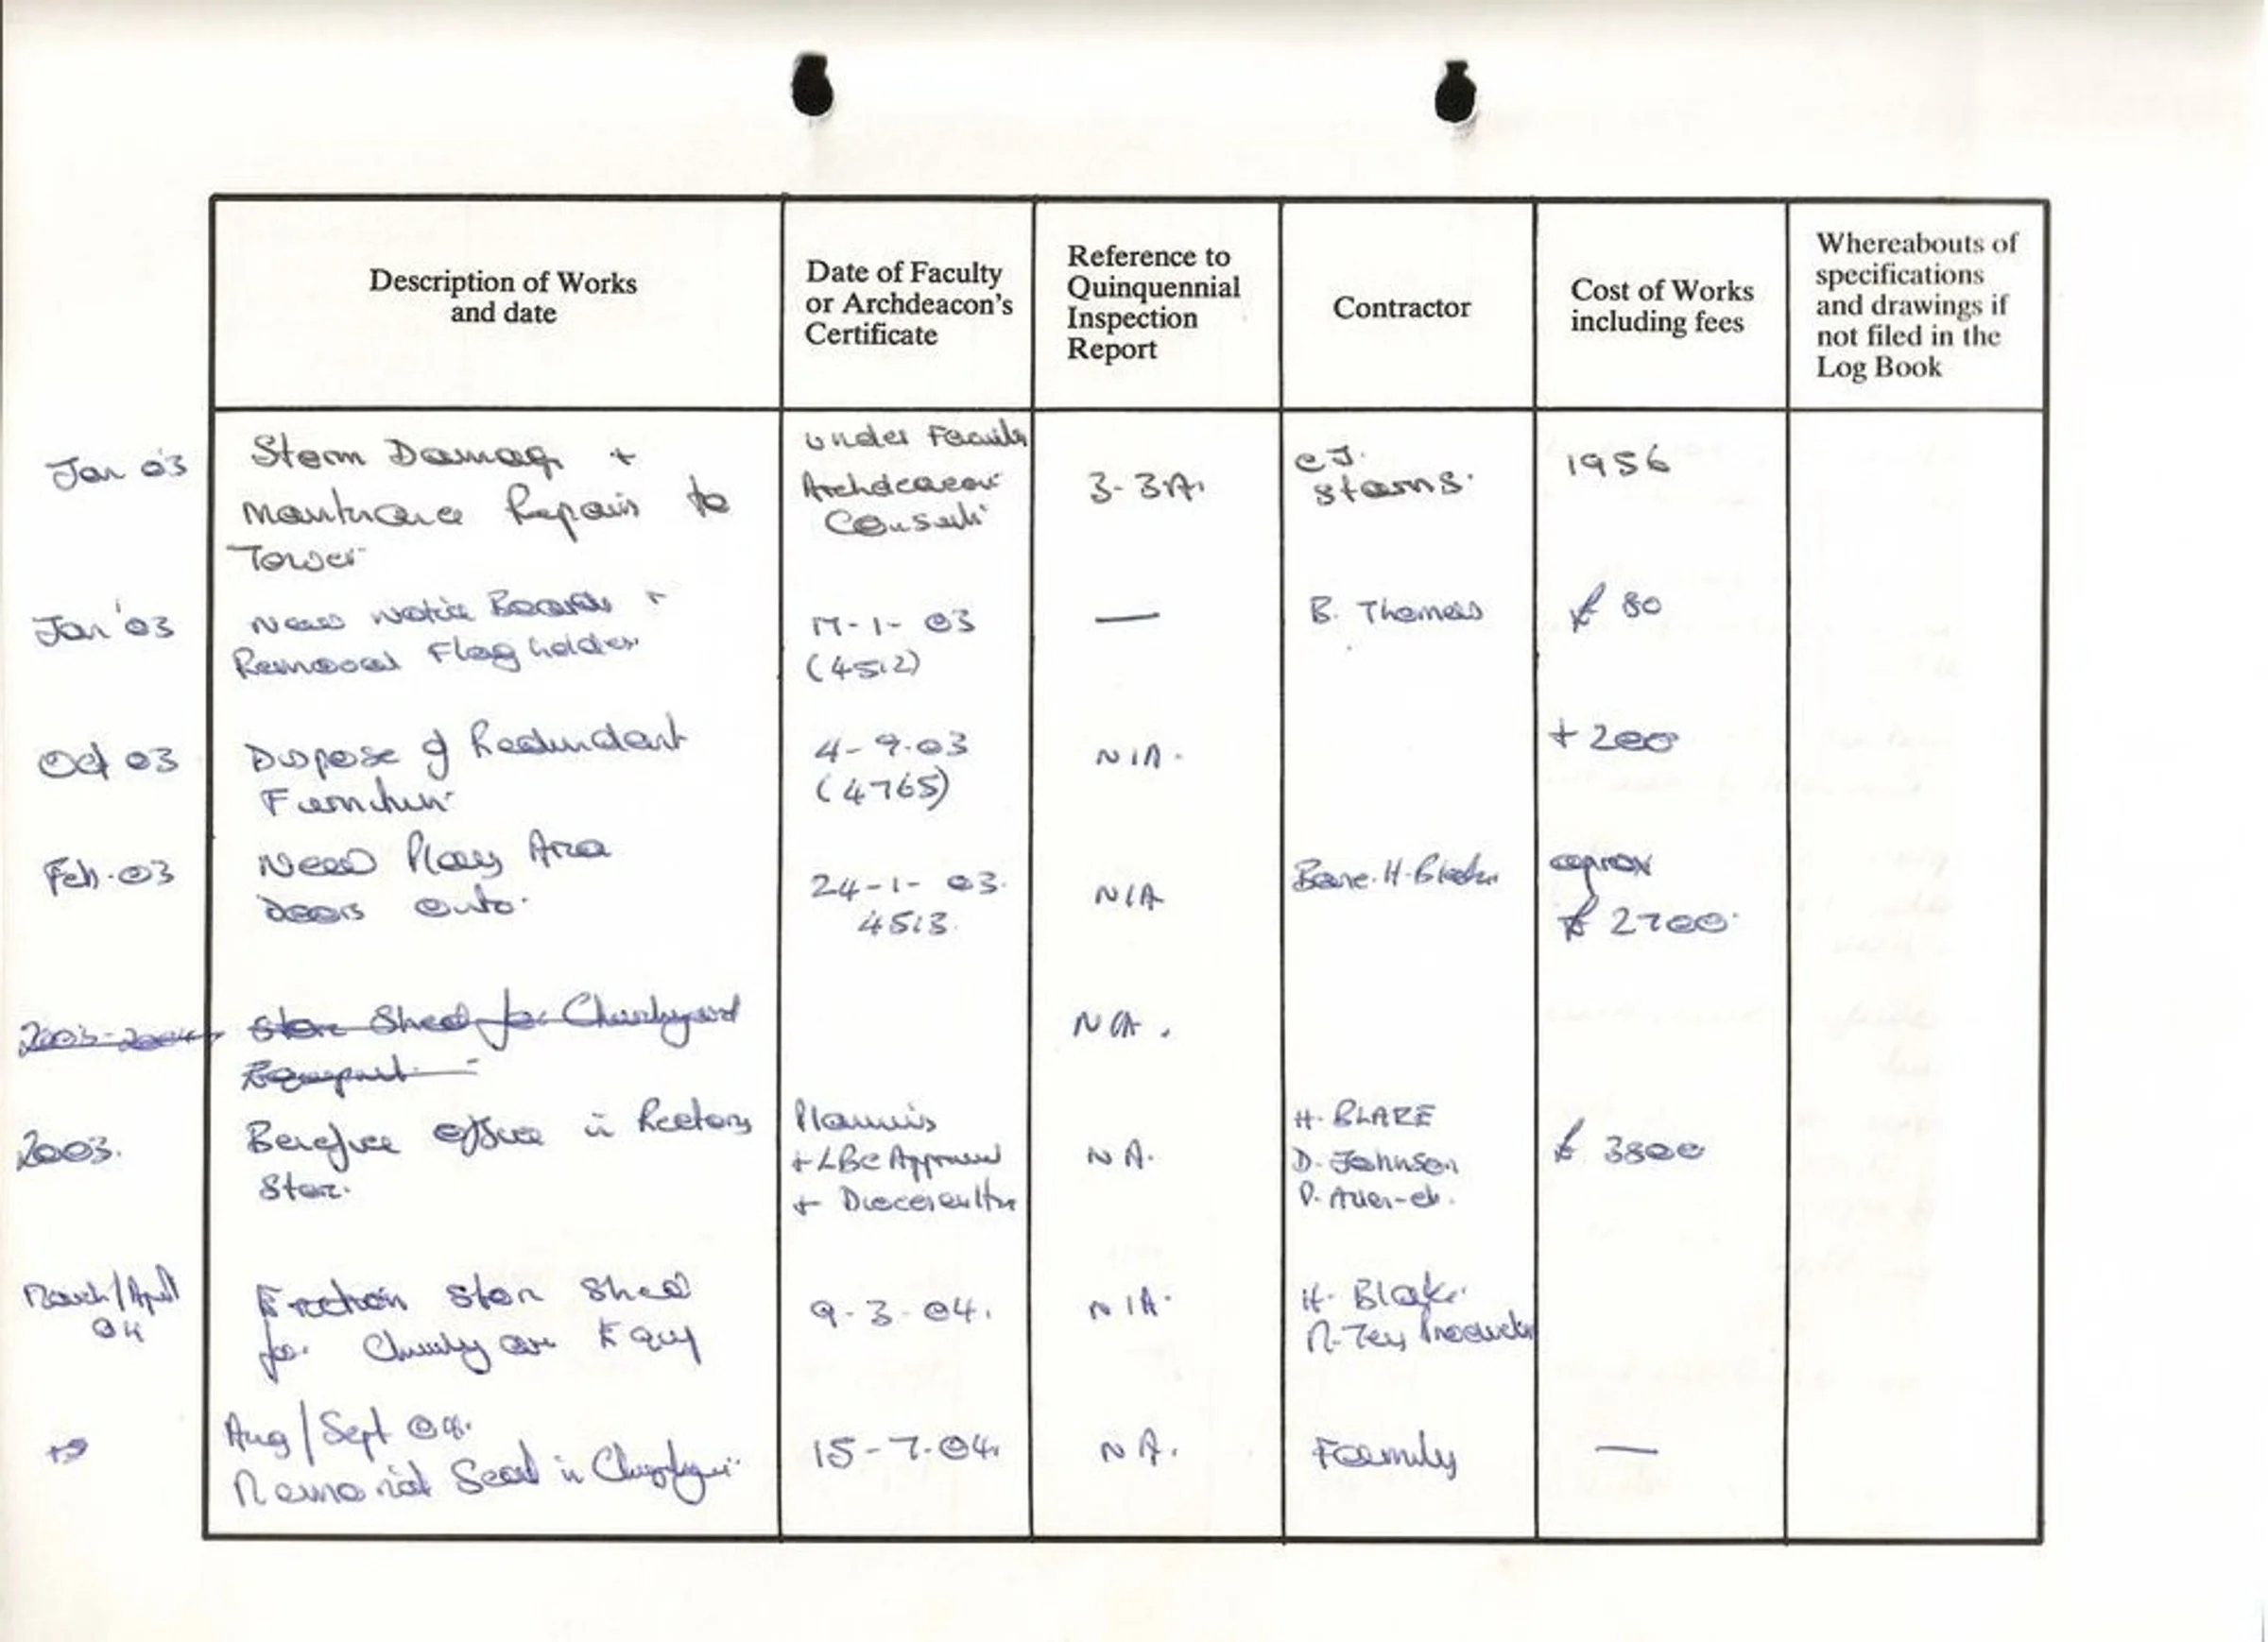 Description of Works
and date
Date of Faculty
or Archdeacon's
Certificate
Reference to
Quinquennial
Inspection
Report
Contractor
Cost of Works
including fees
Whereabouts of
specifications
and drawings if
not filed in the
Log Book
Jan 03
Storm Damage +
Maintenance Repairs to
Tower
under Faculty
Archdeacon
Consult
3-3A.
C J.
Starns.
1956
Jan '03
New Notice Boards +
Removal Flag holder
17-1-03
(4512)
—
B. Thomas
£ 80
Oct 03
Dispose of Redundant
Furniture
4-9-03
(4765)
N/A.
+200
Feb. 03
Need Play Area
Doors
24-1-03.
4513.
N/A
H. Blake
aprox
£ 2700.
2003-2004
Store Shed for Churchyard
Equipment
N/A.
2003.
Benefice Office in Rectory
Store.
Planning
+ LBC Approval
+
NA.
H. BLAKE
D. Johnson
£ 3800
March/April
04
Erection Store Shed
for Churchyard Equip
9-3-04.
N/A.
H. Blake.
Products
Aug/Sept 04.
Memorial Seat in Churchyard
15-7-04.
NA.
Family
—